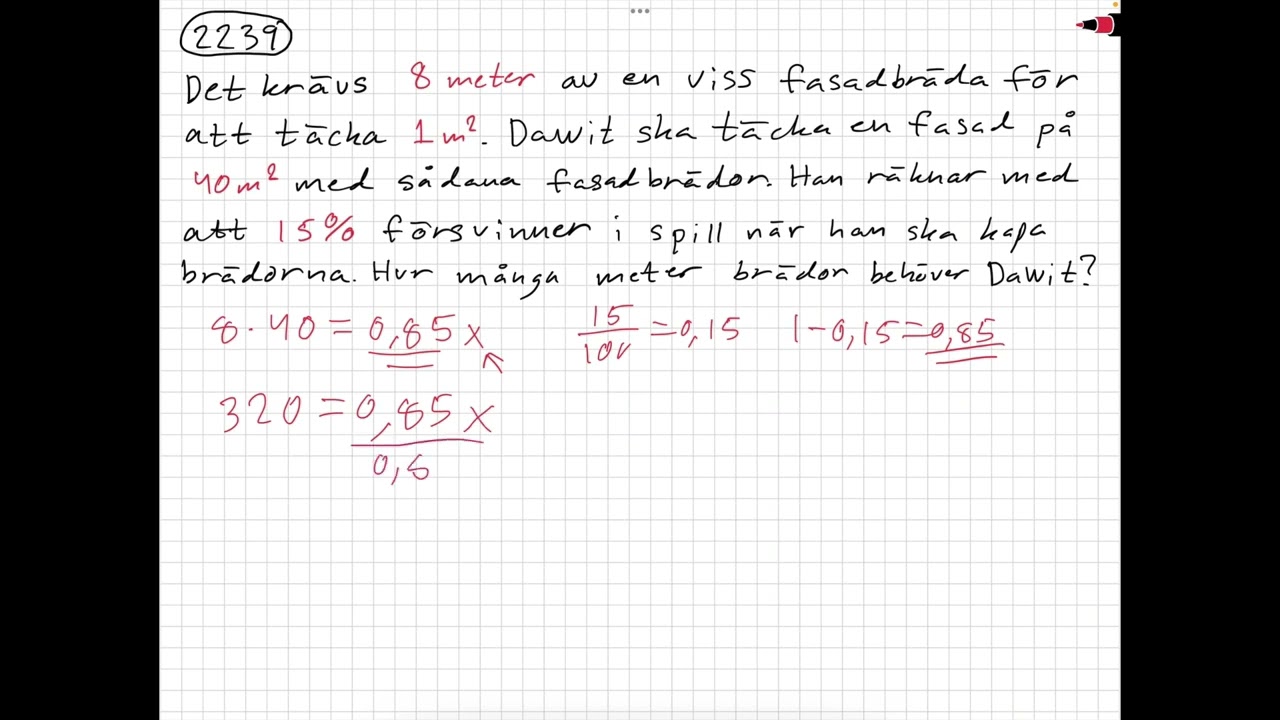 2239
Det krävs 8 meter av en viss fasadbräda för
att täcka 1 m². Dawit ska täcka en fasad på
40 m² med sådana fasadbrädor. Han räknar med
att 15% försvinner i spill när han ska kapa
brädorna. Hur många meter brädor behöver Dawit?
8 · 40 = 0,85 x   15/100 = 0,15   1 - 0,15 = 0,85
320 = 0,85 x
0,8